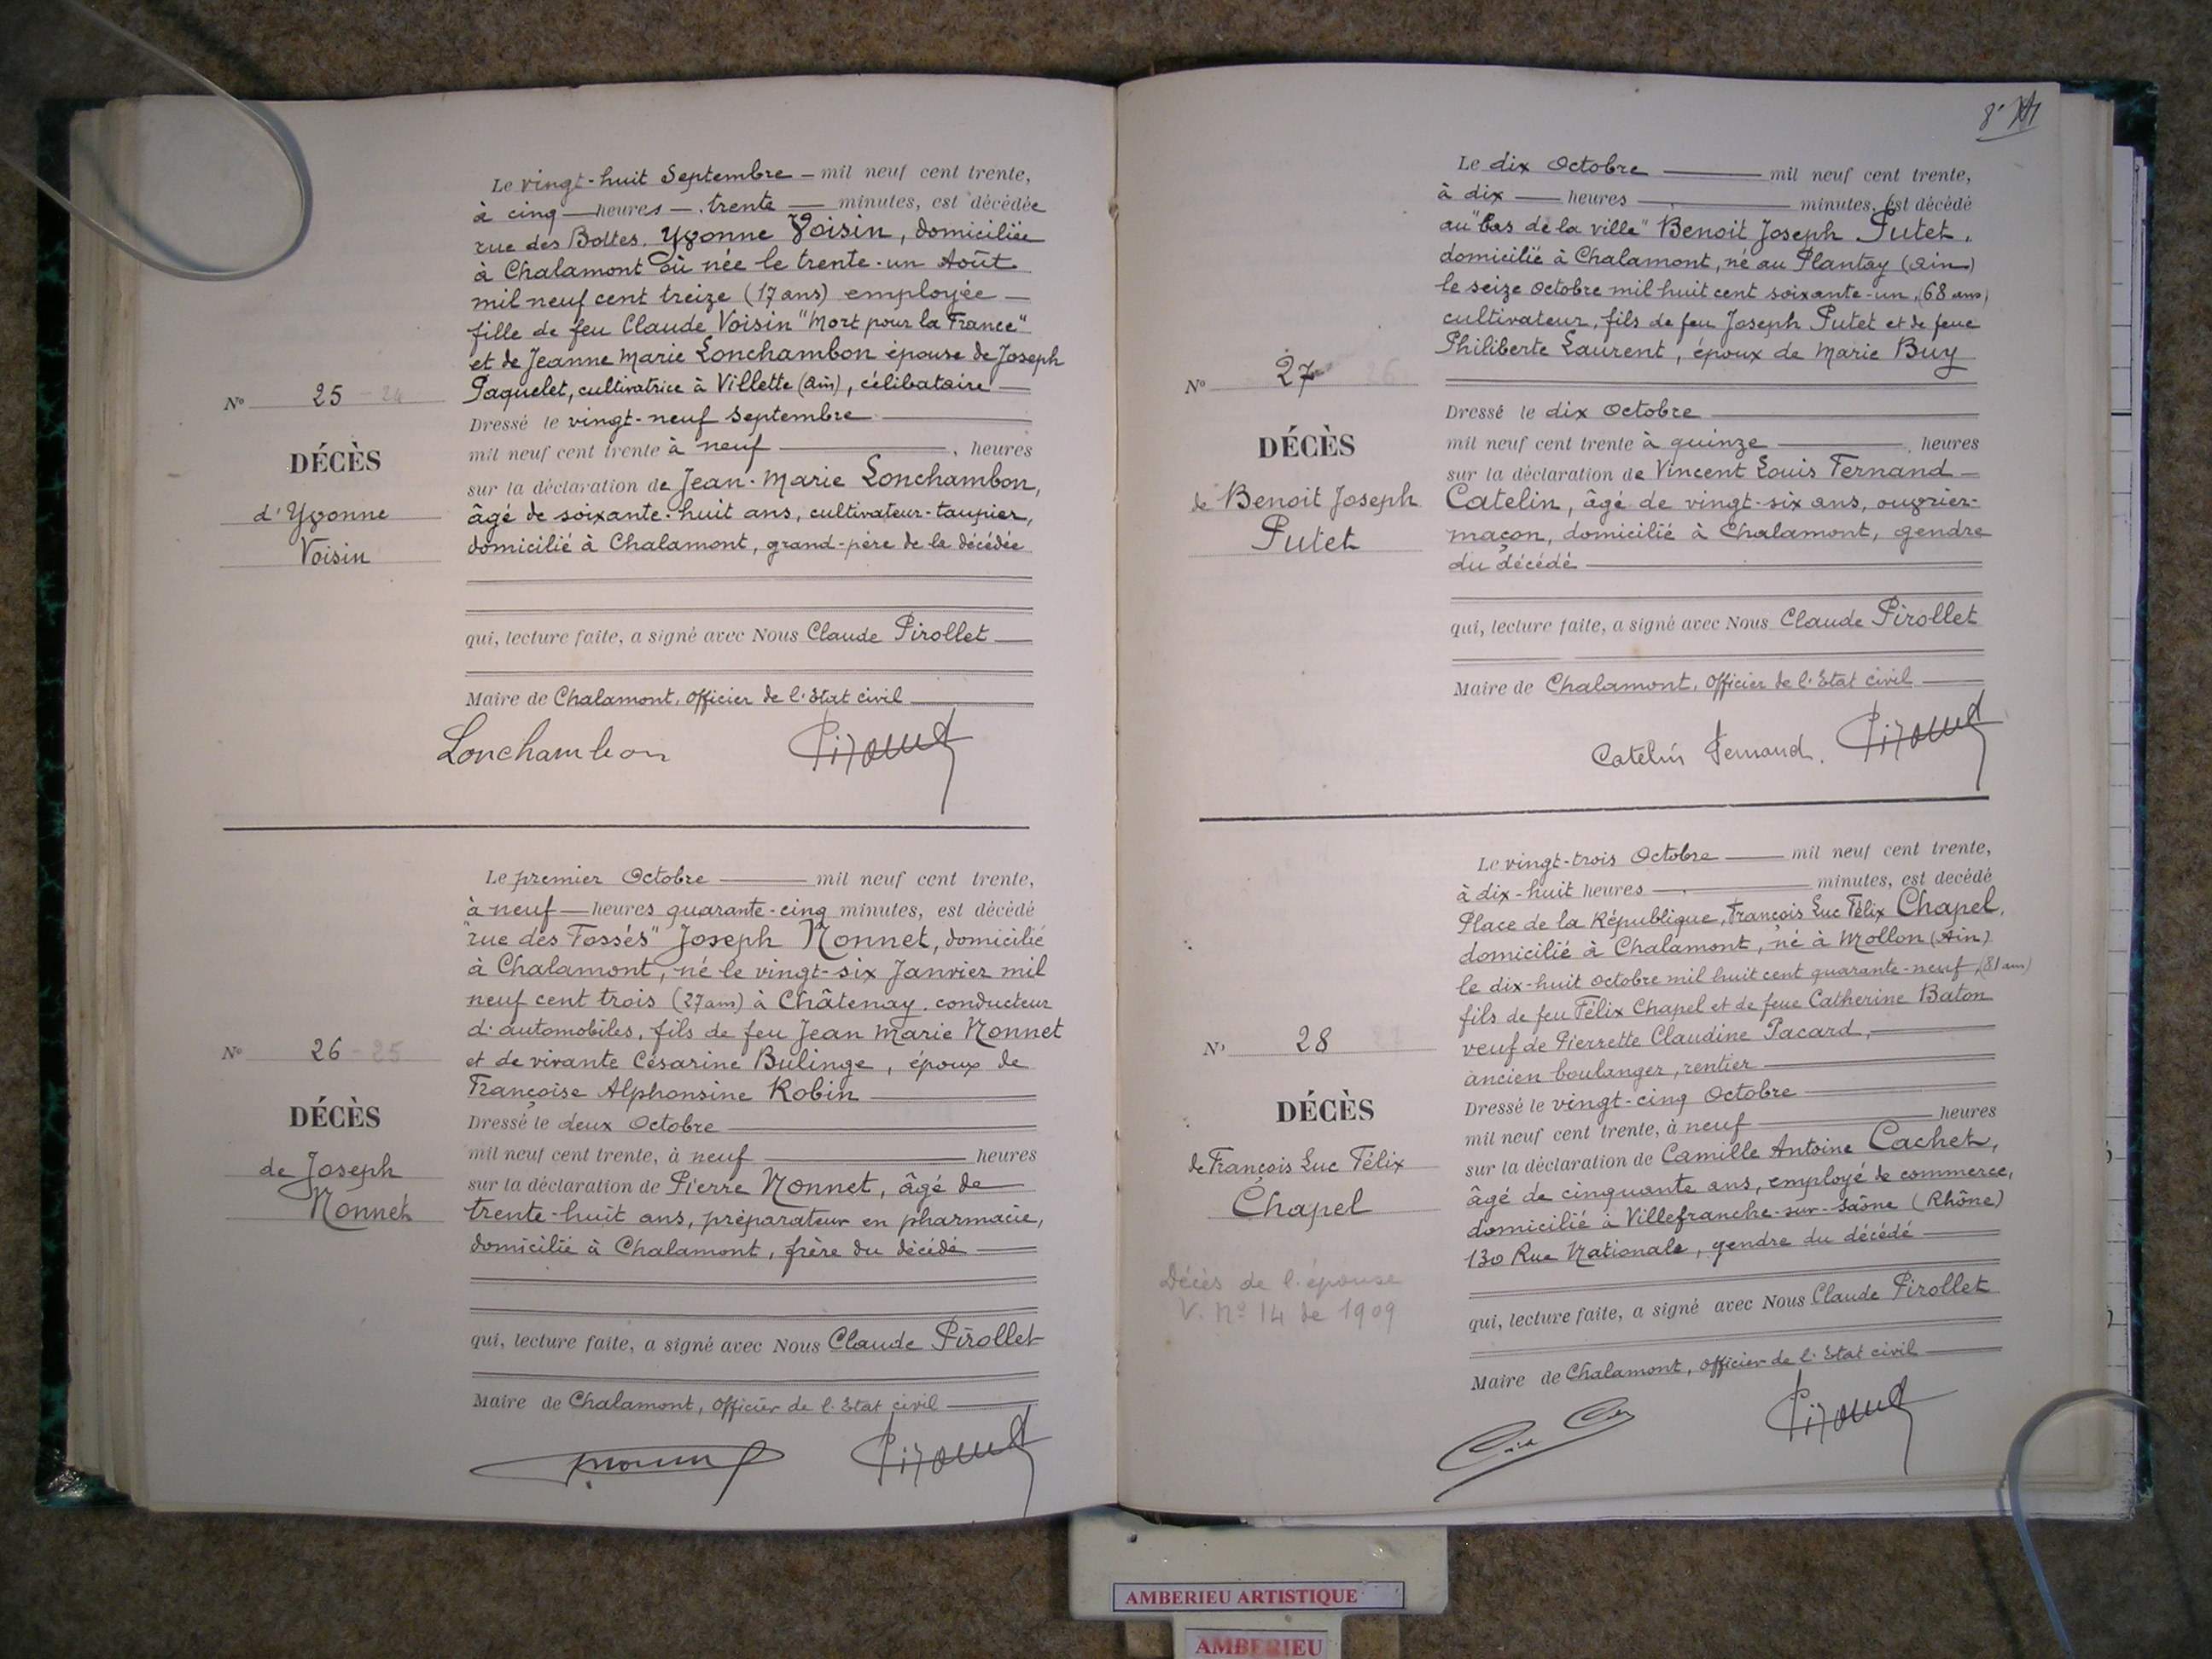 Le vingt-huit Septembre — mil neuf cent trente,
à cinq — heures — trente — minutes, est décédée
rue des Bottes. Yvonne Voisin, domiciliée
à Chalamont où née le trente-un Août
mil neuf cent treize (17 ans) employée —
fille de feu Claude Voisin "Mort pour la France"
et de Jeanne Marie Lonchambon épouse de Joseph
Paquelet, cultivatrice à Villette (Ain), célibataire —
Dressé le vingt-neuf Septembre
mil neuf cent trente à neuf heures
sur la déclaration de Jean-Marie Lonchambon,
âgé de soixante-huit ans, cultivateur-taupier,
domicilié à Chalamont, grand-père de la décédée
qui, lecture faite, a signé avec Nous Claude Pirollet
Maire de Chalamont, Officier de l'Etat civil
Lonchambon Pirollet
N° 25 - 24
DÉCÈS
d'Yvonne
Voisin
Le premier Octobre — mil neuf cent trente,
à neuf — heures quarante-cinq minutes, est décédé
"rue des Fossés" Joseph Nonnet, domicilié
à Chalamont, né le vingt-six Janvier mil
neuf cent trois (27 ans) à Châtenay. conducteur
d'automobiles, fils de feu Jean Marie Nonnet
et de vivante Césarine Bulinge, époux de
Françoise Alphonsine Robin
Dressé le deux Octobre
mil neuf cent trente, à neuf heures
sur la déclaration de Pierre Nonnet, âgé de
trente-huit ans, préparateur en pharmacie,
domicilié à Chalamont, frère du décédé
qui, lecture faite, a signé avec Nous Claude Pirollet
Maire de Chalamont, Officier de l'Etat civil
Pirollet
N° 26 - 25
DÉCÈS
de Joseph
Nonnet
Le dix Octobre — mil neuf cent trente,
à dix — heures — minutes, est décédé
au "bas de la ville" Benoit Joseph Putet,
domicilié à Chalamont, né au Plantay (Ain)
le seize Octobre mil huit cent soixante-un, (68 ans)
cultivateur, fils de feu Joseph Putet et de feue
Philiberte Laurent, époux de Marie Buy
Dressé le dix Octobre
mil neuf cent trente à quinze heures
sur la déclaration de Vincent Louis Fernand —
Catelin, âgé de vingt-six ans, ouvrier-
maçon, domicilié à Chalamont, gendre
du décédé
qui, lecture faite, a signé avec Nous Claude Pirollet
Maire de Chalamont, Officier de l'Etat civil
Catelin Fernand. Pirollet
N° 27 26
DÉCÈS
de Benoit Joseph
Putet
Le vingt-trois Octobre — mil neuf cent trente,
à dix-huit heures — minutes, est décédé
Place de la République, François Luc Félix Chapel,
domicilié à Chalamont, né à Mollon (Ain)
le dix-huit Octobre mil huit cent quarante-neuf, (81 ans)
fils de feu Félix Chapel et de feue Catherine Baton
veuf de Pierrette Claudine Pacard,
ancien boulanger, rentier
Dressé le vingt-cinq Octobre
mil neuf cent trente, à neuf heures
sur la déclaration de Camille Antoine Cachet,
âgé de cinquante ans, employé de commerce,
domicilié à Villefranche-sur-Saône (Rhône)
130 Rue Nationale, gendre du décédé
qui, lecture faite, a signé avec Nous Claude Pirollet
Maire de Chalamont, Officier de l'Etat civil
Pirollet
N° 28
DÉCÈS
de François Luc Félix
Chapel
Décès de l'épouse
V. N° 14 de 1909
AMBERIEU ARTISTIQUE
AMBERIEU